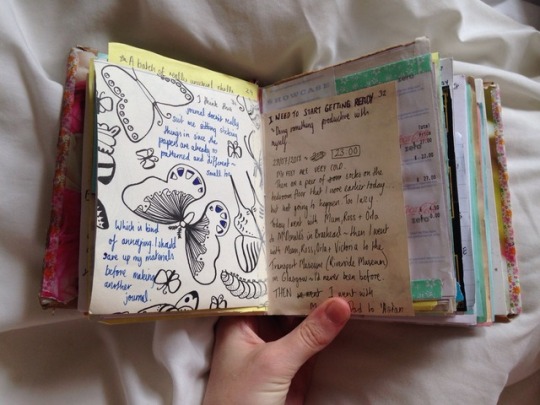 A batch of really unusual shells
I think this
journal doesn't really
suit me sticking
things in since the
papers are already so
patterned and different -
Small too,
Which is kind
of annoying. I should
save up my materials
before making
another
journal.
SHOWCASE
I NEED TO START GETTING READY
Doing something productive with
myself
23:00
My feet are very cold.
There are a pair of socks on the
bedroom floor that I wore earlier today
but not going to happen. I'm lazy
Today I went with Mum, Ross + Orla
to McDonalds in Braehead - then I went
with Mum, Ross, Orla + Victoria to the
Transport Museum (Riverside Museum)
in Glasgow - I'd never been before.
THEN I went with